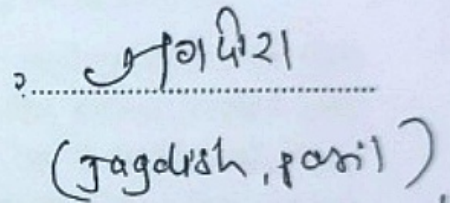 २. જગદીશ
(Jagdish, pasi)